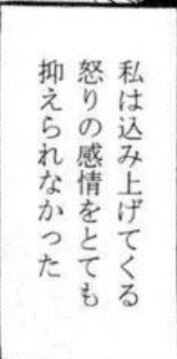 私は込み上げてくる
怒りの感情をとても
抑えられなかった